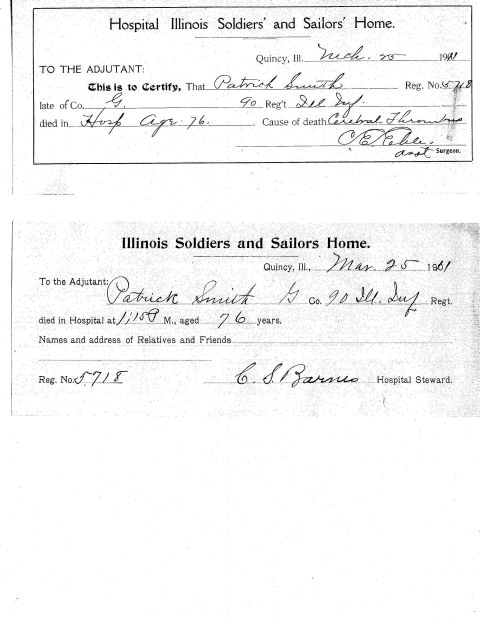 Hospital Illinois Soldiers' and Sailors' Home.
Quincy, Ill. Mch. 25 1911
TO THE ADJUTANT:
This is to Certify, That Patrick Smith Reg. No. 5718
late of Co. G. 90 Reg't Ill Inf.
died in Hosp Age 76. Cause of death Cerebral Thrombus
C. E.
asst Surgeon.
Illinois Soldiers and Sailors Home.
Quincy, Ill., Mar. 25 1911
To the Adjutant:
Patrick Smith G Co. 90 Ill. Inf Regt.
died in Hospital at 1:15 P M., aged 76 years.
Names and address of Relatives and Friends
Reg. No. 5718 C. S. Barnes Hospital Steward.